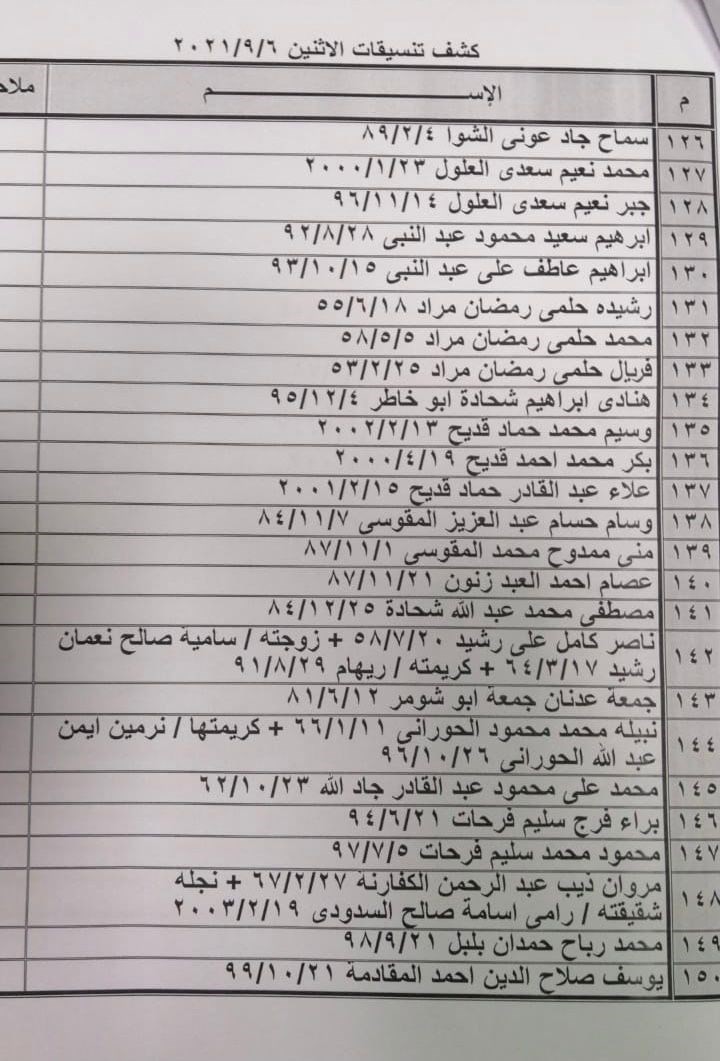 كشف تنسيقات الاثنين ٢٠٢١/٩/٦
م الإســـــم ملاح
١٢٦ سماح جاد عونى الشوا ٨٩/٢/٤
١٢٧ محمد نعيم سعدى العلول ٢٠٠٠/١/٢٣
١٢٨ جبر نعيم سعدى العلول ٩٦/١١/١٤
١٢٩ ابرهيم سعيد محمود عبد النبى ٩٢/٨/٢٨
١٣٠ ابراهيم عاطف على عبد النبى ٩٣/١٠/١٥
١٣١ رشيده حلمى رمضان مراد ٥٥/٦/١٨
١٣٢ محمد حلمى رمضان مراد ٥٨/٥/٥
١٣٣ فريال حلمى رمضان مراد ٥٣/٢/٢٥
١٣٤ هنادى ابراهيم شحادة ابو خاطر ٩٥/١٢/٤
١٣٥ وسيم محمد حماد قديح ٢٠٠٢/٢/١٣
١٣٦ بكر محمد احمد قديح ٢٠٠٠/٤/١٩
١٣٧ علاء عبد القادر حماد قديح ٢٠٠١/٢/١٥
١٣٨ وسام حسام عبد العزيز المقوسى ٨٤/١١/٧
١٣٩ منى ممدوح محمد المقوسى ٨٧/١١/١
١٤٠ عصام احمد العبد زنون ٨٧/١١/٢١
١٤١ مصطفى محمد عبد الله شحادة ٨٤/١٢/٢٥
١٤٢ ناصر كامل على رشيد ٥٨/٧/٢٠ + زوجته / سامية صالح نعمان
رشيد ٦٤/٣/١٧ + كريمته / ريهام ٩١/٨/٢٩
١٤٣ جمعة عدنان جمعة ابو شومر ٨١/٦/١٢
١٤٤ نبيله محمد محمود الحورانى ٦٦/١/١١ + كريمتها / نرمين ايمن
عبد الله الحورانى ٩٦/١٠/٢٦
١٤٥ محمد على محمود عبد القادر جاد الله ٦٢/١٠/٢٣
١٤٦ براء فرج سليم فرحات ٩٤/٦/٢١
١٤٧ محمود محمد سليم فرحات ٩٧/٧/٥
١٤٨ مروان ذيب عبد الرحمن الكفارنة ٦٧/٢/٢٧ + نجله
شقيقته / رامى اسامة صالح السدودى ٢٠٠٣/٢/١٩
١٤٩ محمد رباح حمدان بلبل ٩٨/٩/٢١
١٥٠ يوسف صلاح الدين احمد المقادمة ٩٩/١٠/٢١